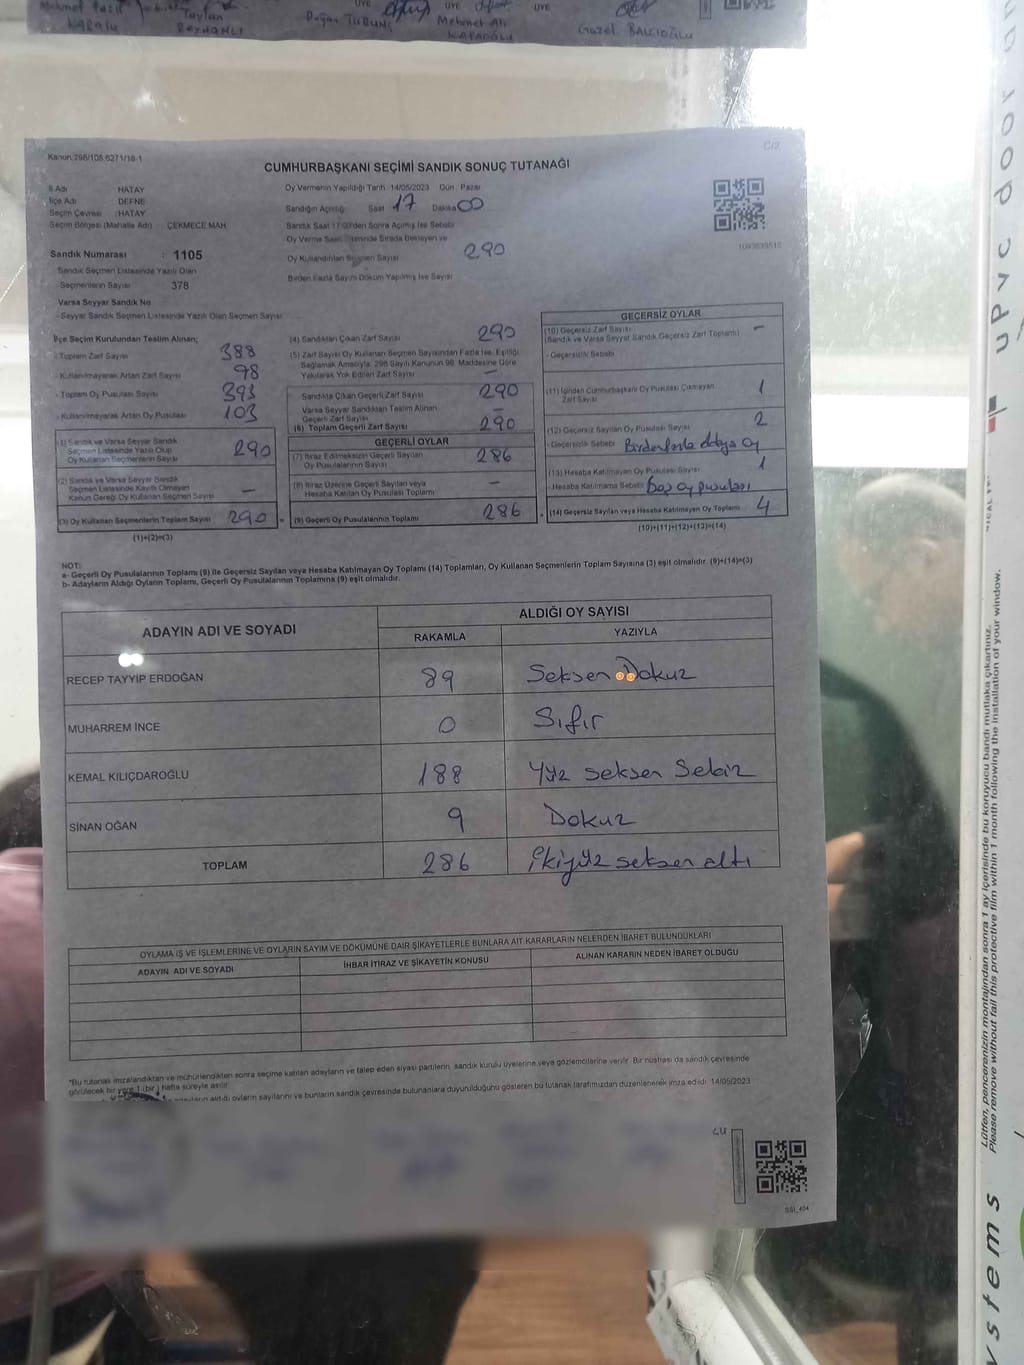 Mehmet Fazıl
KARASU
Taylan
BEYHANLI
ÜYE
Doğan TURUNÇ
ÜYE
Mehmet Ali
KARAOĞLU
ÜYE
Gazel BALCIOĞLU
Kanun:298/105,6271/18-1
C/2
CUMHURBAŞKANI SEÇİMİ SANDIK SONUÇ TUTANAĞI
İl Adı HATAY
İlçe Adı DEFNE
Seçim Çevresi : HATAY
Seçim Bölgesi (Mahalle Adı) ÇEKMECE MAH.
Oy Vermenin Yapıldığı Tarih :14/05/2023 Gün : Pazar
Sandığın Açılışı; Saat : 17 Dakika 00
Sandık Saat 17:00'den Sonra Açılmış İse Sebebi
Oy Verme Saati Bitiminde Sırada Bekleyen ve
Oy Kullandırılan Seçmen Sayısı 290
Birden Fazla Sayım Döküm Yapılmış İse Sayısı
Sandık Numarası : 1105
Sandık Seçmen Listesinde Yazılı Olan
Seçmenlerin Sayısı 378
Varsa Seyyar Sandık No
- Seyyar Sandık Seçmen Listesinde Yazılı Olan Seçmen Sayısı
İlçe Seçim Kurulundan Teslim Alınan;
- Toplam Zarf Sayısı 388
- Kullanılmayarak Artan Zarf Sayısı 98
- Toplam Oy Pusulası Sayısı 393
- Kullanılmayarak Artan Oy Pusulası 103
(1) Sandık ve Varsa Seyyar Sandık
Seçmen Listesinde Yazılı Olup
Oy Kullanan Seçmenlerin Sayısı 290
(2) Sandık ve Varsa Seyyar Sandık
Seçmen Listesinde Kayıtlı Olmayan
Kanun Gereği Oy Kullanan Seçmen Sayısı —
(3) Oy Kullanan Seçmenlerin Toplam Sayısı 290
(1)+(2)=(3)
(4) Sandıktan Çıkan Zarf Sayısı 290
(5) Zarf Sayısı Oy Kullanan Seçmen Sayısından Fazla İse, Eşitliği
Sağlamak Amacıyla; 298 Sayılı Kanunun 98. Maddesine Göre
Yakılarak Yok Edilen Zarf Sayısı —
Sandıkta Çıkan Geçerli Zarf Sayısı 290
Varsa Seyyar Sandıktan Teslim Alınan
Geçerli Zarf Sayısı —
(6) Toplam Geçerli Zarf Sayısı 290
GEÇERLİ OYLAR
(7) İtiraz Edilmeksizin Geçerli Sayılan
Oy Pusulalarının Sayısı 286
(8) İtiraz Üzerine Geçerli Sayılan veya
Hesaba Katılan Oy Pusulası Toplamı —
(9) Geçerli Oy Pusulalarının Toplamı 286
GEÇERSİZ OYLAR
(10) Geçersiz Zarf Sayısı
(Sandık ve Varsa Seyyar Sandık Geçersiz Zarf Toplamı) —
- Geçersizlik Sebebi
(11) İçinden Cumhurbaşkanı Oy Pusulası Çıkmayan
Zarf Sayısı 1
(12) Geçersiz Sayılan Oy Pusulası Sayısı 2
- Geçersizlik Sebebi Birden fazla adaya oy
(13) Hesaba Katılmayan Oy Pusulası Sayısı 1
- Hesaba Katılmama Sebebi Boş oy pusulası
(14) Geçersiz Sayılan veya Hesaba Katılmayan Oy Toplamı 4
(10)+(11)+(12)+(13)=(14)
NOT:
a- Geçerli Oy Pusulalarının Toplamı (9) ile Geçersiz Sayılan veya Hesaba Katılmayan Oy Toplamı (14) Toplamları, Oy Kullanan Seçmenlerin Toplam Sayısına (3) eşit olmalıdır. (9)+(14)=(3)
b- Adayların Aldığı Oyların Toplamı, Geçerli Oy Pusulalarının Toplamına (9) eşit olmalıdır.
ADAYIN ADI VE SOYADI
ALDIĞI OY SAYISI
RAKAMLA YAZIYLA
RECEP TAYYİP ERDOĞAN 89 Seksen Dokuz
MUHARREM İNCE 0 Sıfır
KEMAL KILIÇDAROĞLU 188 Yüz seksen Sekiz
SİNAN OĞAN 9 Dokuz
TOPLAM 286 İkiyüz seksen altı
OYLAMA İŞ VE İŞLEMLERİNE VE OYLARIN SAYIM VE DÖKÜMÜNE DAİR ŞİKAYETLERLE BUNLARA AİT KARARLARIN NELERDEN İBARET BULUNDUKLARI
ADAYIN ADI VE SOYADI İHBAR İTİRAZ VE ŞİKAYETİN KONUSU ALINAN KARARIN NEDEN İBARET OLDUĞU
"Bu tutanak imzalandıktan ve mühürlendikten sonra seçime katılan adayların ve talep eden siyasi partilerin sandık kurulu üyelerine veya gözlemcilerine verilir. Bir nüshası da sandık çevresinde
görülecek bir yere 1 (bir) hafta süreyle asılır.
adayların aldığı oyların sayılarını ve bunların sandık çevresinde bulunanlara duyurulduğunu gösteren bu tutanak tarafımızdan düzenlenerek imza edildi. 14/05/2023
SSI_404
upvc door an
Lütfen, pencerenizin montajından sonra 1 ay içerisinde bu koruyucu bandı mutlaka çıkartınız.
Please remove without fail this protective film within 1 month following the installation of your window.
ystems